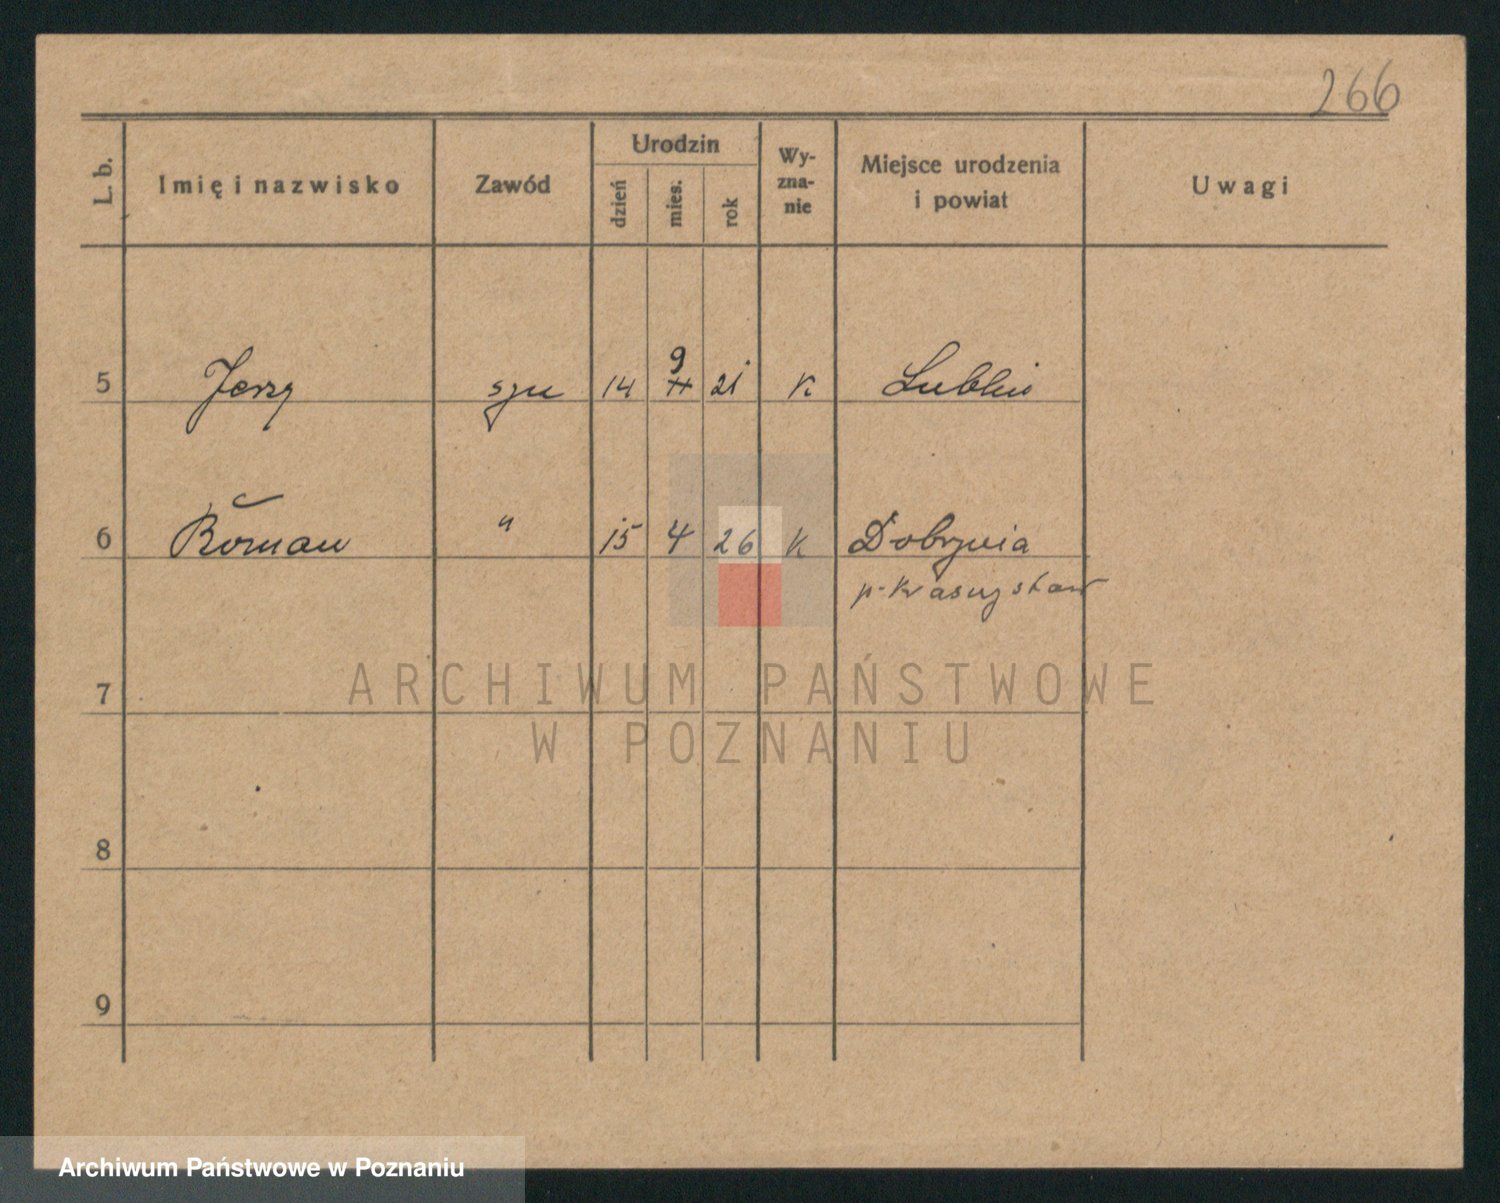 266
L. b.
Imię i nazwisko
Zawód
Urodzin
dzień
mies.
rok
Wy-
zna-
nie
Miejsce urodzenia
i powiat
Uwagi
9
5 Jerzy syn 14 21 K Lublin
6 Roman " 15 4 26 K Dobrynia
p. Krasnystaw
ARCHIWUM PAŃSTWOWE
W POZNANIU
7
8
9
Archiwum Państwowe w Poznaniu